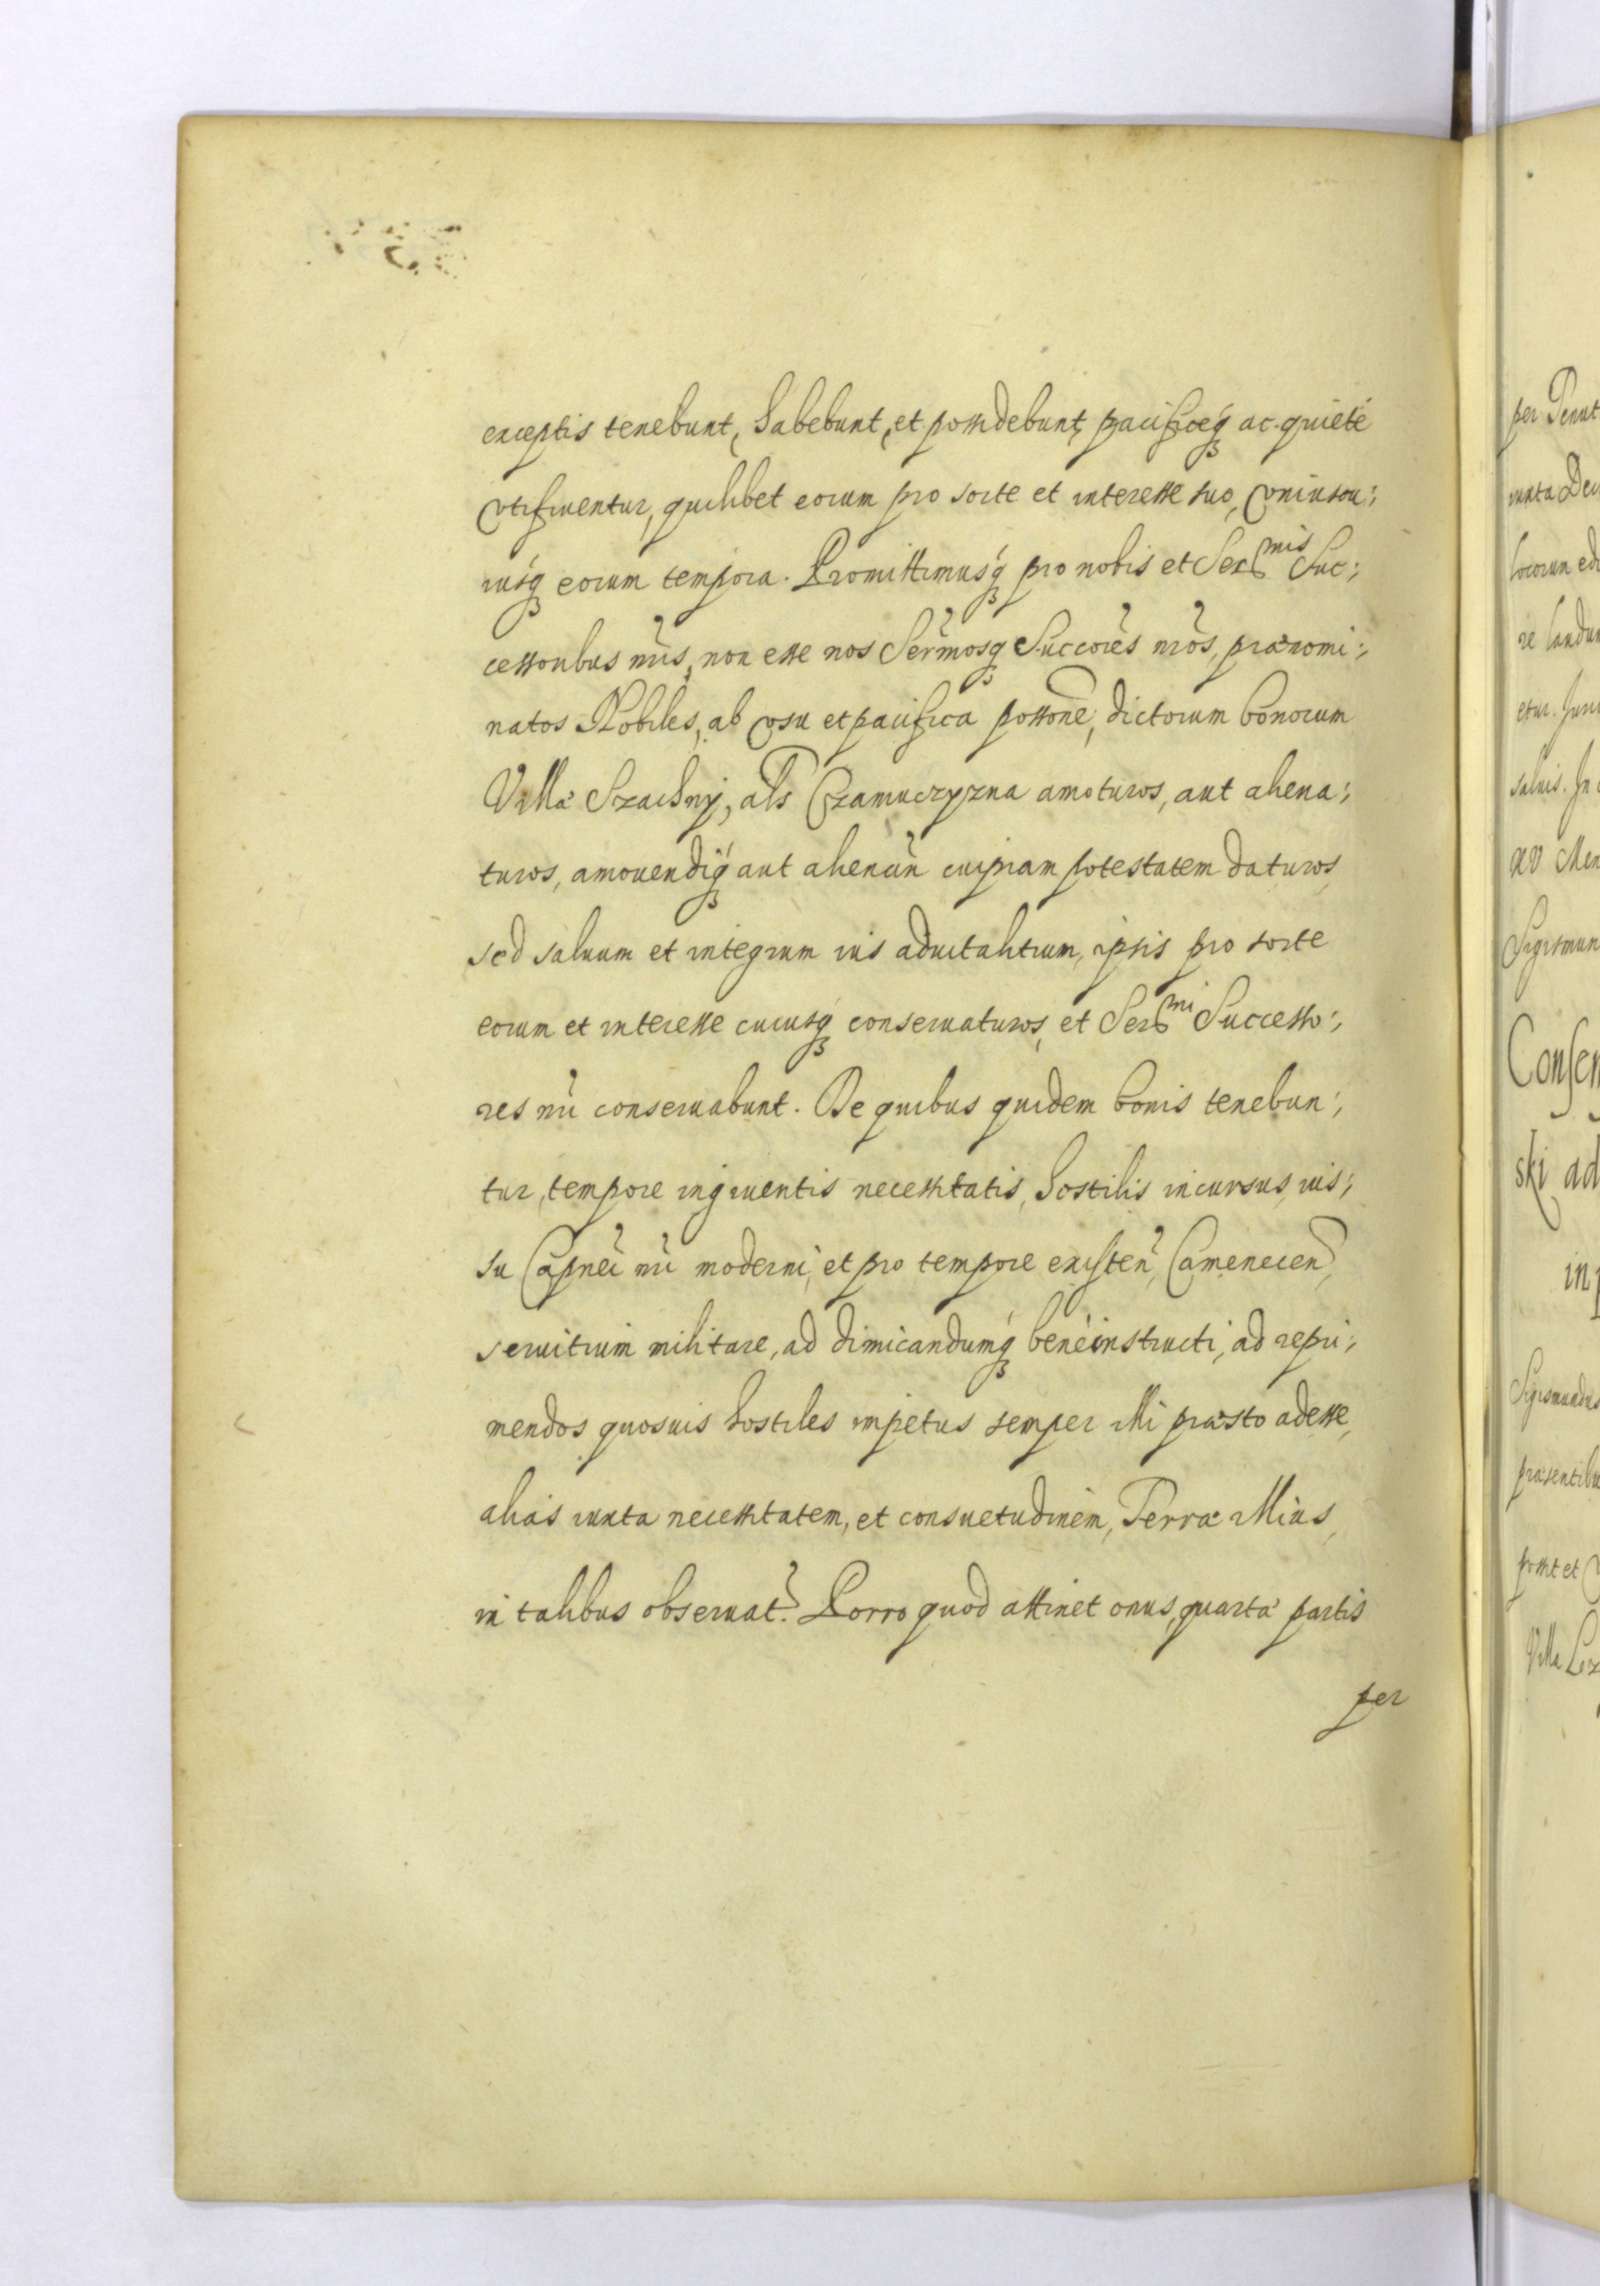 exceptis tenebunt, habebunt, et possidebunt, pacificeq́ꝫ ac quietè
vtifruentur, quilibet eorum pro sorte et interesse suo, vniuscu:,
iusq́ꝫ eorum tempora. Promittimusq́ꝫ pro nobis et Ser^mis Suc:,
cessoribus nr̃is, non esse nos Ser̃mosqꝫ Succor̃es nr̃os, prænomi:,
natos Nobiles, ab vsu et pacifica possõne, dictorum bonorum
Villæ Szachny, als Czamuczyzna amoturos, aut aliena:,
turos, amouendiq́ꝫ aut alienañ cuipiam potestatem daturos,
sed saluum et integrum ius aduitalitium, ipsis pro sorte
eorum et interesse cuiusq́ꝫ conseruaturos, et Ser^mi Successo:,
res nr̃i conseruabunt. De quibus quidem bonis tenebun:,
tur, tempore ingruentis necessitatis, hostilis incursus, ius:,
su Capnei nr̃i moderni, et pro tempore existeñ, Camenecen,
seruitium militare, ad dimicandumq́ꝫ benè instructi, ad repri:,
mendos quosuis hostiles impetus semper illi præsto adesse,
aliàs iuxta necessitatem, et consuetudinem, Terræ illius,
in talibus obseruat̃. Porro quod attinet onus, quartæ partis
per
per
iuxta
locorum
re
etur.
saluis. In
XV
Sigismun
Consen
ski ad
in
Sigismundus
præsentibu
possit et
Villa